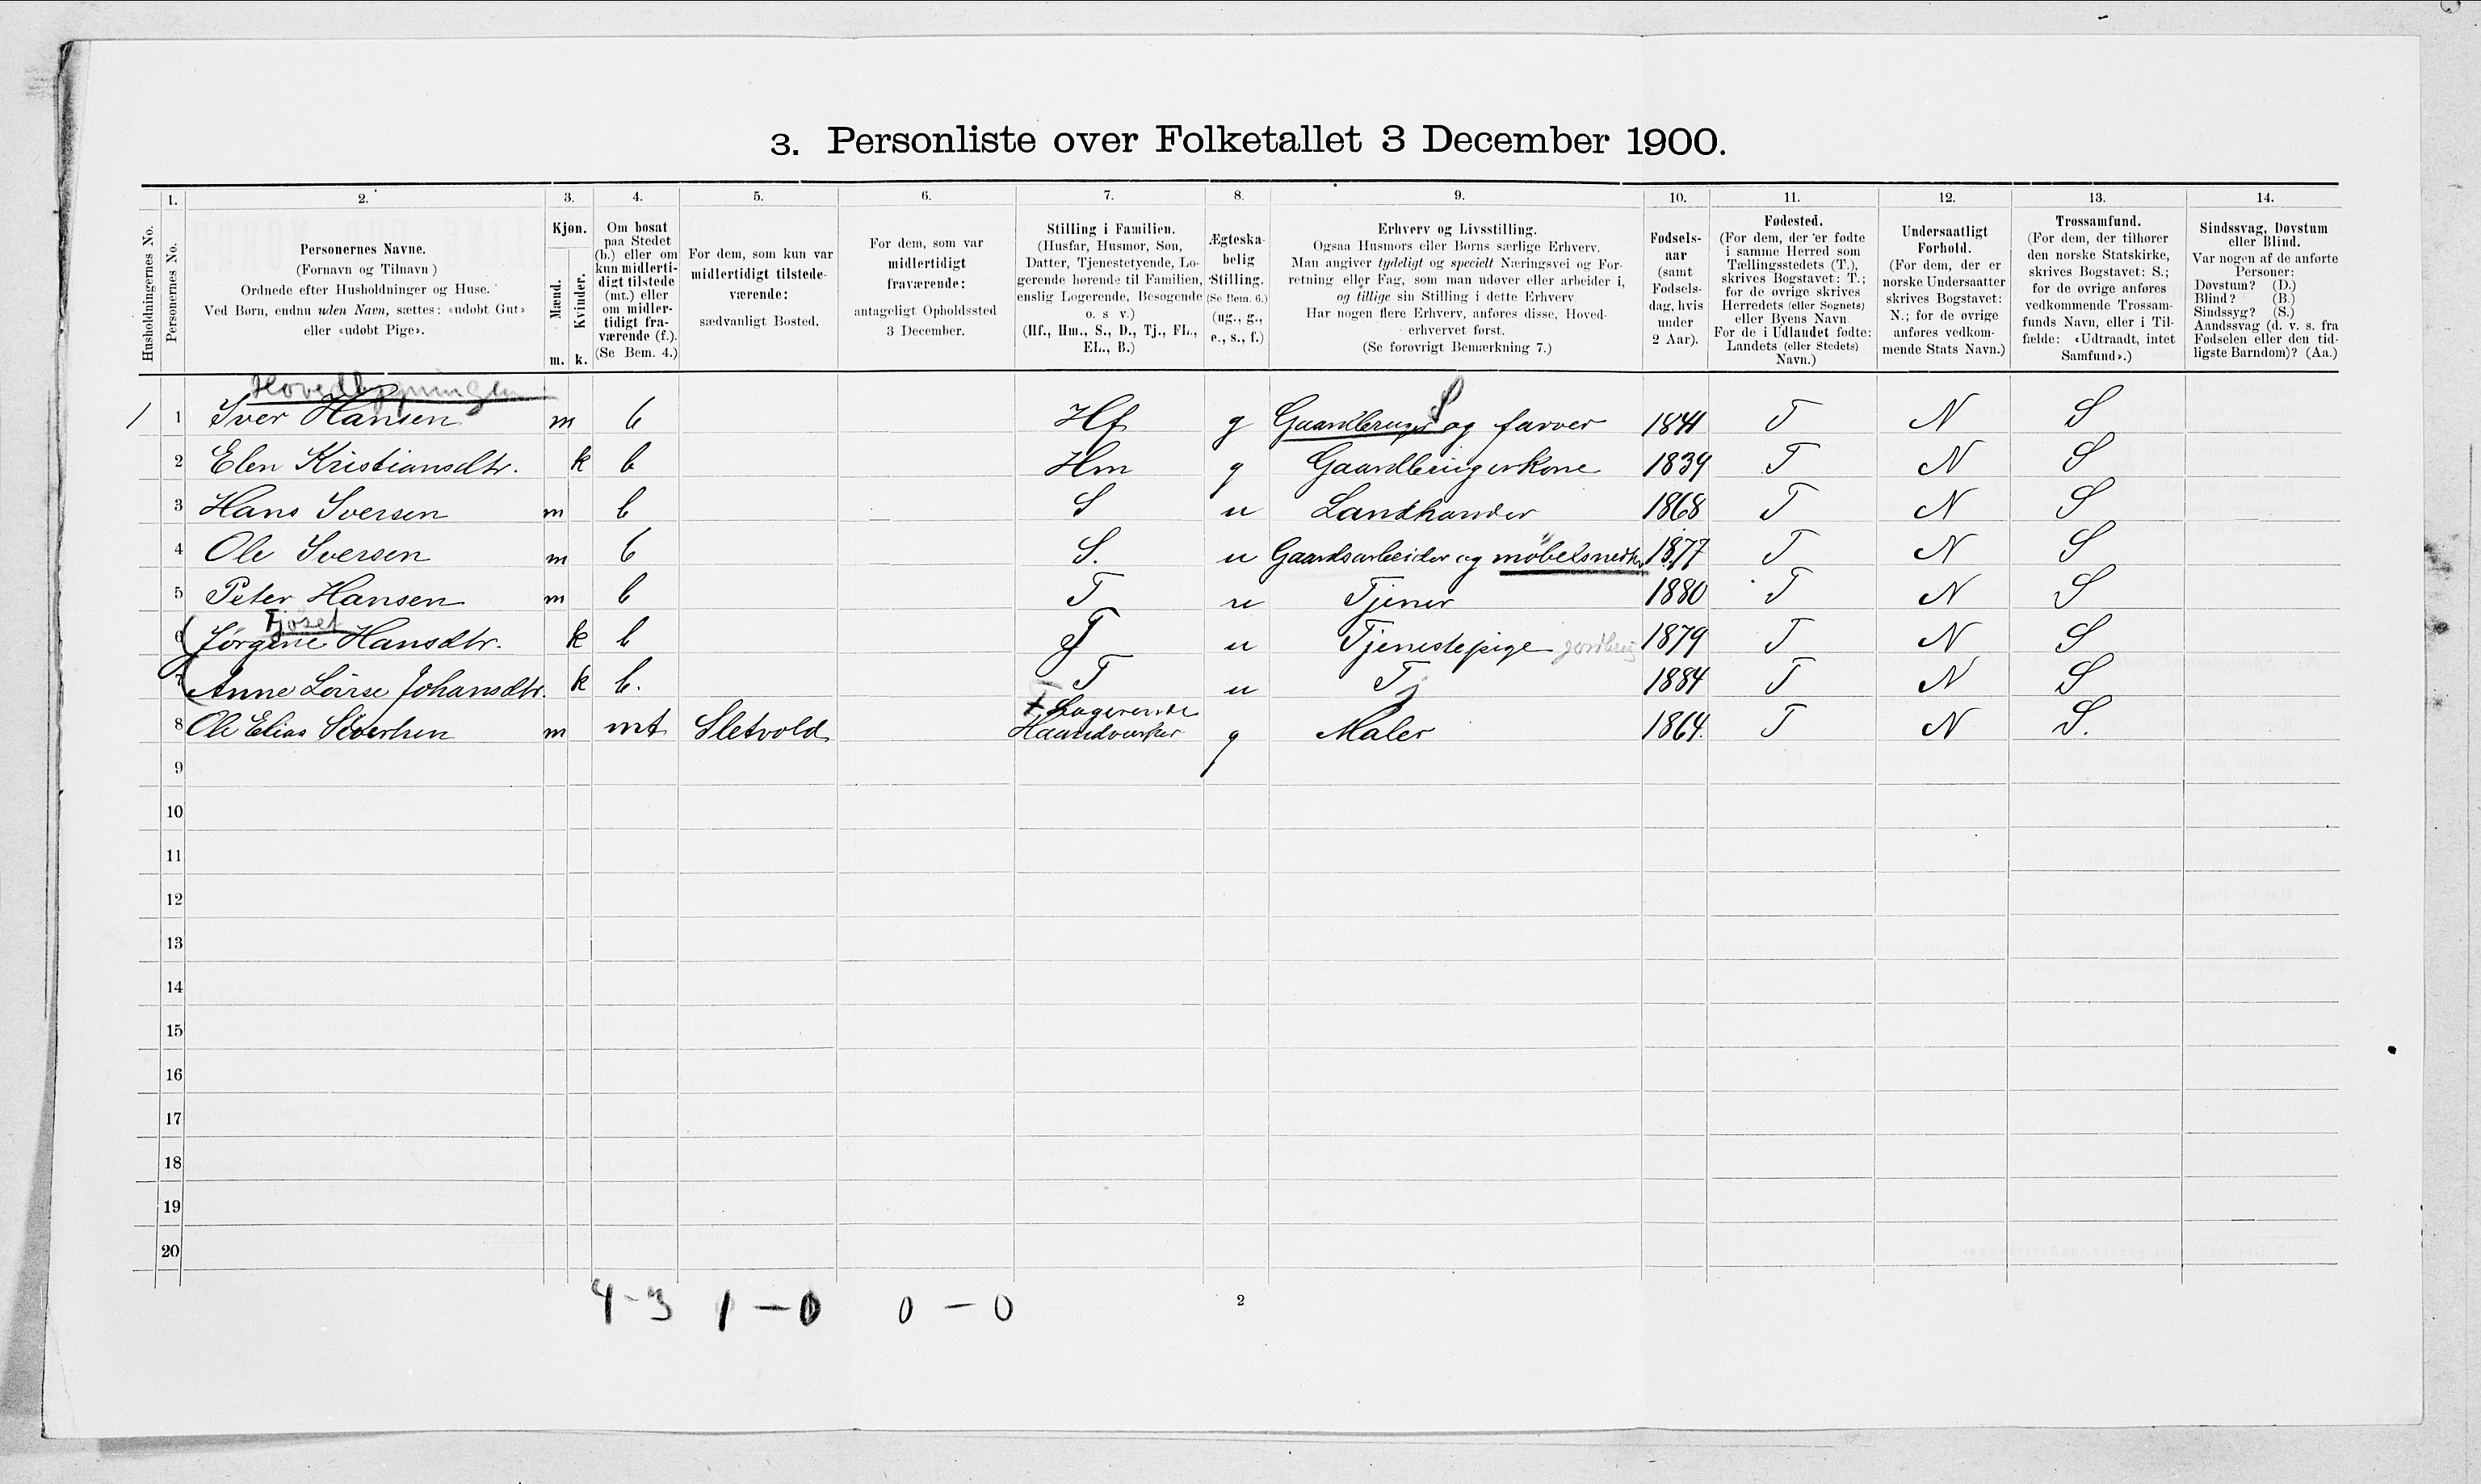 3. Personliste over Folketallet 3 December 1900.
1. 2. 3. 4. 5. 6. 7. 8. 9. 10. 11. 12. 13. 14.
Husholdningernes No.
Personernes No.
Personernes Navne.
(Fornavn og Tilnavn)
Ordnede efter Husholdninger og Huse.
Ved Børn, endnu uden Navn, sættes: «udøbt Gut»
eller «udøbt Pige».
Kjøn.
Mænd.
Kvinder.
m. k.
Om bosat
paa Stedet
(b.) eller om
kun midlerti-
digt tilstede
(mt.) eller
om midler-
tidigt fra-
værende (f.).
(Se Bem. 4.)
For dem, som kun var
midlertidigt tilstede-
værende:
sædvanligt Bosted.
For dem, som var
midlertidigt
fraværende:
antageligt Opholdssted
3 December.
Stilling i Familien.
(Husfar, Husmor, Søn,
Datter, Tjenestetyende, Lo-
gerende hørende til Familien,
enslig Logerende, Besøgende
o. s v.)
(Hf., Hm., S., D., Tj., FL.,
EL., B.)
Ægteska-
belig
Stilling.
(Se Bem. 6.)
(ug., g.,
e., s., f.)
Erhverv og Livsstilling.
Ogsaa Husmors eller Børns særlige Erhverv.
Man angiver tydeligt og specielt Næringsvei og For-
retning eller Fag, som man udøver eller arbeider i,
og tillige sin Stilling i dette Erhverv.
Har nogen flere Erhverv, anføres disse, Hoved-
erhvervet først.
(Se forøvrigt Bemærkning 7.)
Fødsels-
aar
(samt
Fødsels-
dag, hvis
under
2 Aar).
Fødested.
(For dem, der er fødte
i samme Herred som
Tællingsstedets (T.),
skrives Bogstavet: T.;
for de øvrige skrives
Herredets (eller Sognets)
eller Byens Navn.
For de i Udlandet fødte:
Landets (eller Stedets)
Navn.)
Undersaatligt
Forhold.
(For dem, der er
norske Undersaatter
skrives Bogstavet:
N.; for de øvrige
anføres vedkom-
mende Stats Navn.)
Trossamfund.
(For dem, der tilhører
den norske Statskirke,
skrives Bogstavet: S.;
for de øvrige anføres
vedkommende Trossam-
funds Navn, eller i Til-
fælde: «Udtraadt, intet
Samfund».)
Sindssvag, Døvstum
eller Blind.
Var nogen af de anførte
Personer:
Døvstum? (D.)
Blind? (B.)
Sindssyg? (S.)
Aandssvag (d. v. s. fra
Fødselen eller den tid-
ligste Barndom)? (Aa.)
Hovedbygningen
1 1 Iver Hansen m b Hf g Gaardbruger og farver S 1841 T N S
2 Elen Kristiansdtr. k b Hm g Gaardbrugerkone 1839 T N S
3 Hans Iversen m b S u Landhandler 1868 T N S
4 Ole Iversen m b S. u Gaardsarbeider og møbelsnedker 1877 T N S
5 Peter Hansen m b T u Tjener 1880 T N S
Fjøset
6 Jørgine Hansdtr. k b T u Tjenestepige jordbrug 1879 T N S
7 Anne Lovise Johansdtr. k b. T u Tj 1884 T N S
Logerende
8 Ole Elias Sivertsen m mt Sletvold Haandverker g Maler 1864. T N S.
9
10
11
12
13
14
15
16
17
18
19
20
4-3 1-0 0-0
2